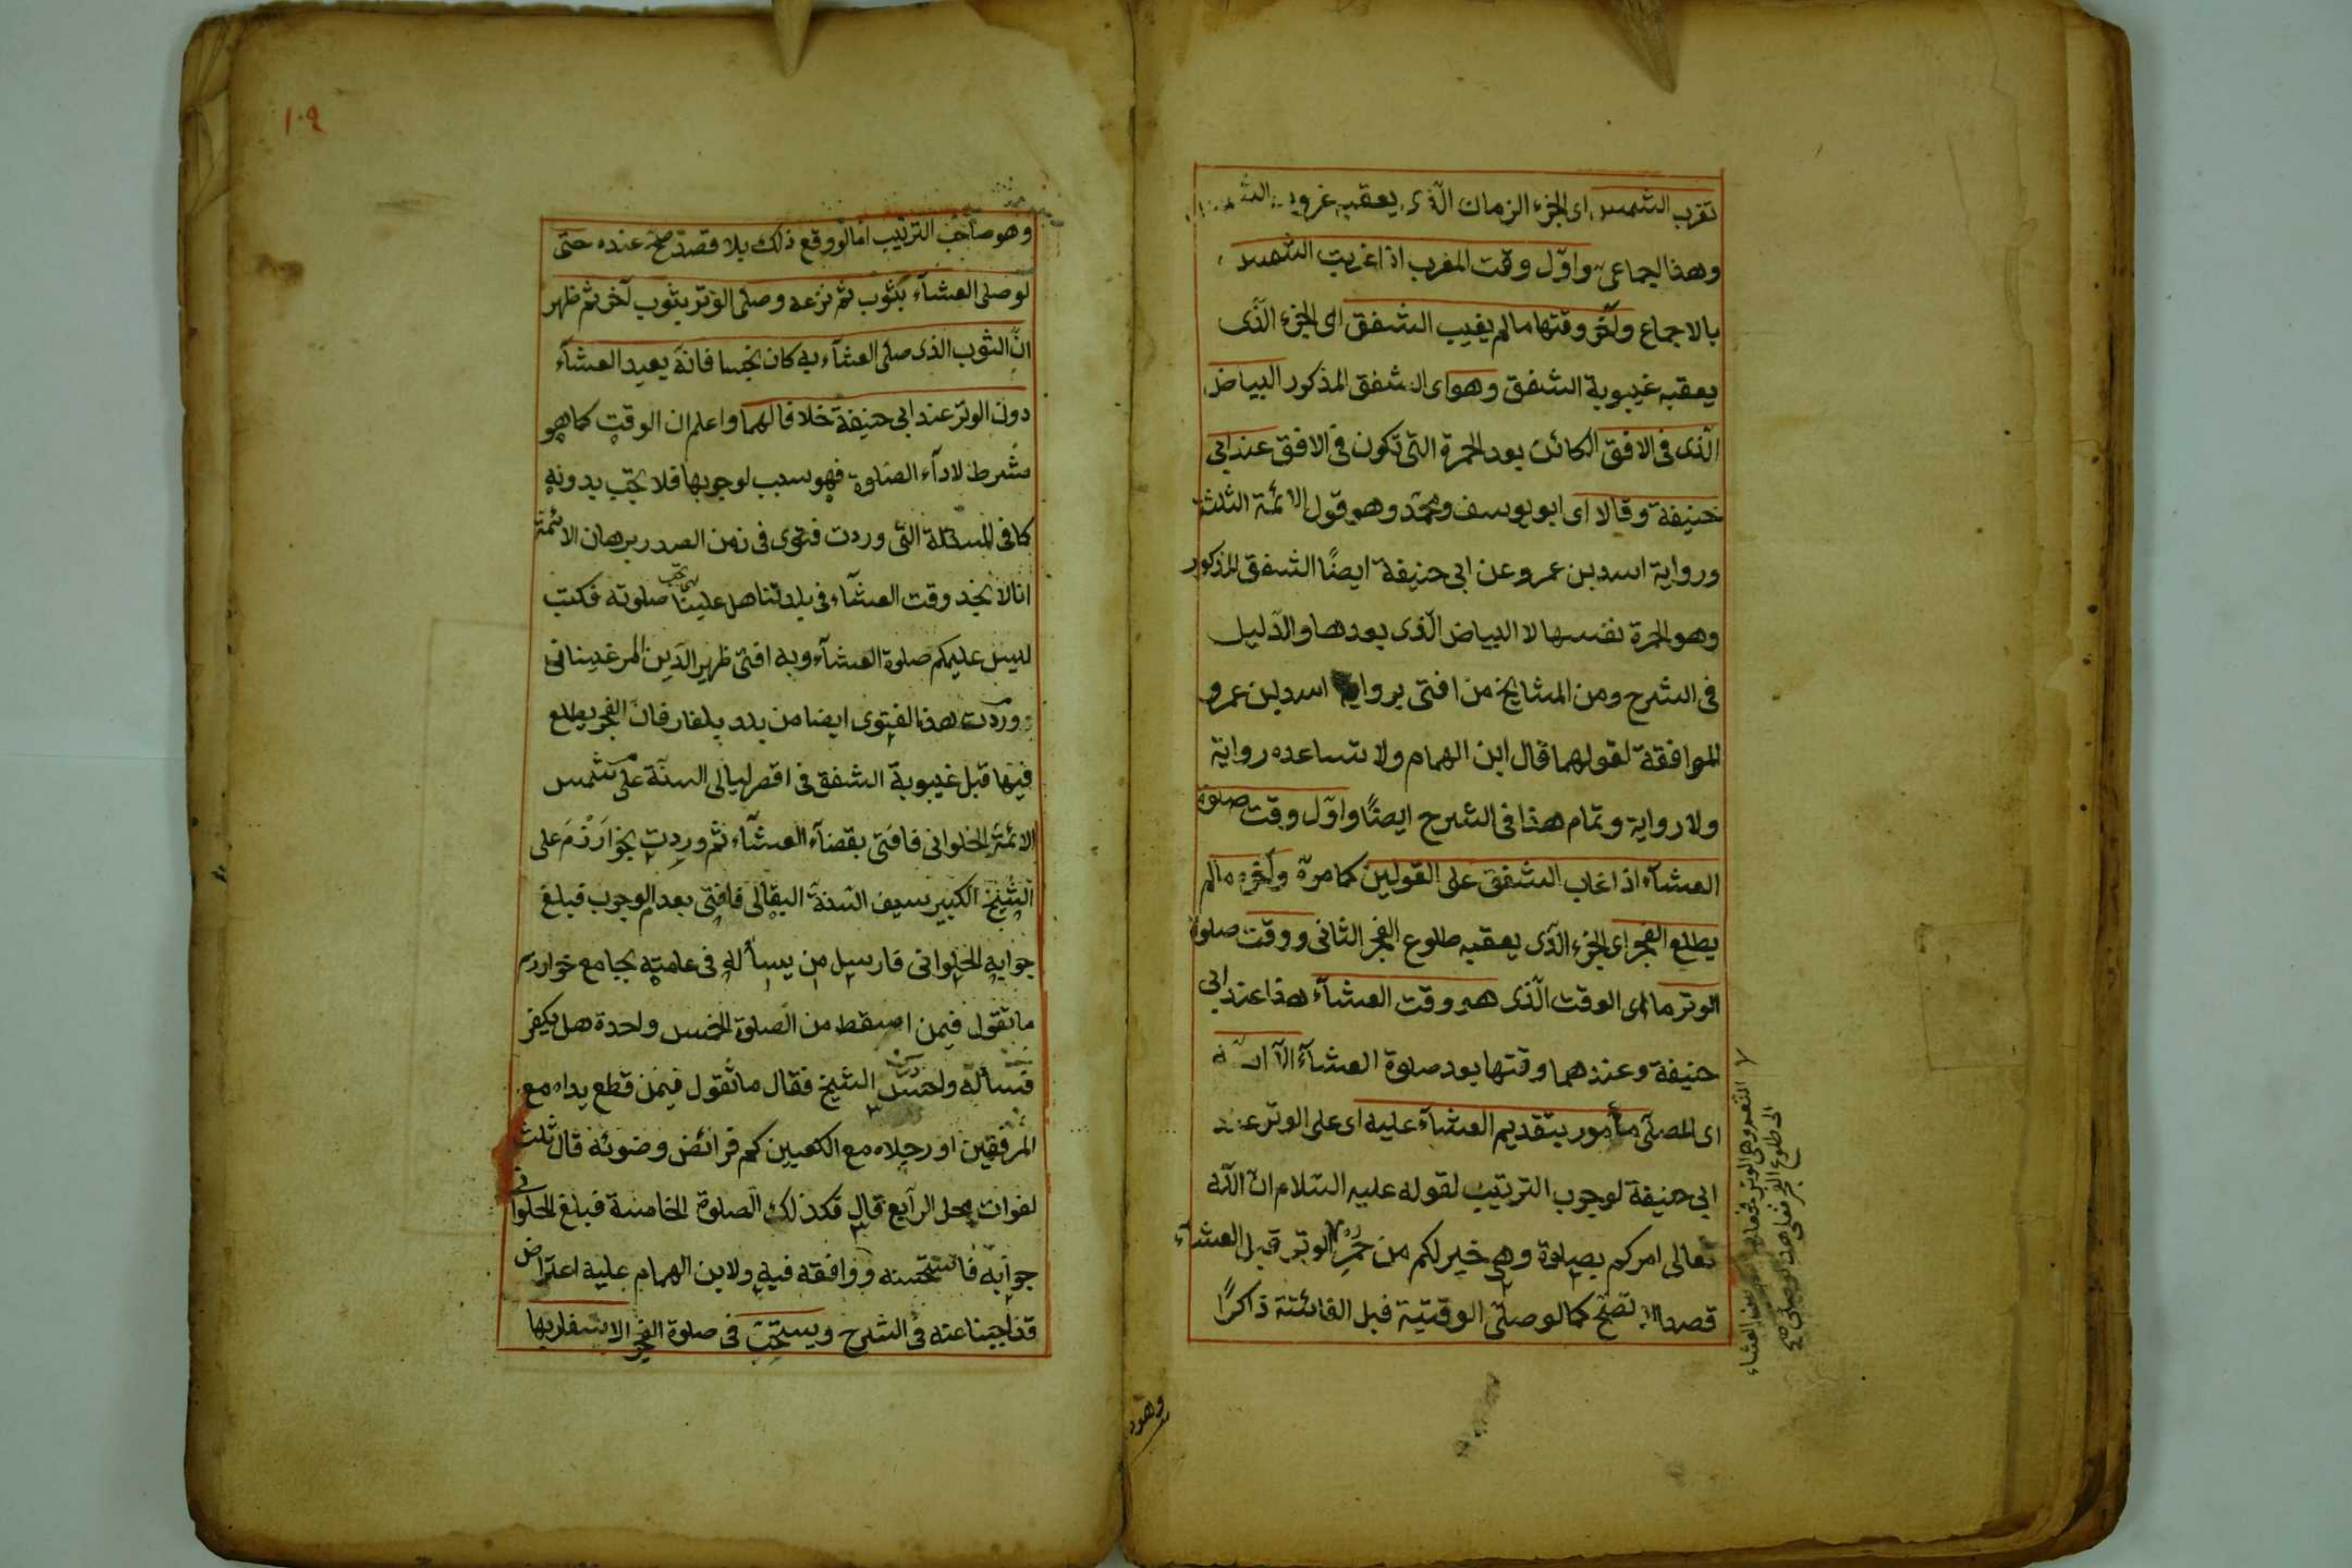 تغرب الشمس اى الجزء الزمان الّذى يعقبه غروب الشمس
وهذا اجماعى واوّل وقت المغرب اذا غربت الشمس
بالاجماع وآخر وقتها مالم يغيب الشفق اى الجزء الّذى
يعقبه غيبوبة الشفق وهو اى الشفق المذكور البياض
الّذى فى الافق الكائن بعد الحمرة التى تكون فى الافق عند ابى
حنيفة وقالا اى ابو يوسف ومحمّد وهو قول الائمة الثلثة
ورواية اسد بن عمرو عن ابى حنيفة ايضًا الشفق المذكور
وهو الحمرة نفسها لا البياض الّذى بعدها والدّليل
فى الشرح ومن المشايخ من افتى برواية اسد بن عمرو
الموافقة لقولهما قال ابن الهمام ولا تساعده رواية
ولا رواية وتمام هذا فى الشرح ايضًا واوّل وقت صلوة
العشاء اذا غاب الشفق على القولين كما مرّة وآخره مالم
يطلع الفجر اى الجزء الّذى يعقبه طلوع الفجر الثانى ووقت صلوة
الوتر ما اى الوقت الّذى هو وقت العشاء هذا عند ابى
حنيفة وعندهما وقتها بعد صلوة العشاء الّا انّه
اى المصلّى مأمور بتقديم العشاء عليه اى على الوتر عند
ابى حنيفة لوجوب الترتيب لقوله عليه السّلام انّ اللّه
تعالى امركم بصلوة وهى خير لكم من حُمْرِ الوتر قبل العشاء
قصدا لا تصحّ كما لو صلّى الوقتية قبل الفائتة ذاكرًا
النّعم وهى الوتر فجعلها بين العشاء
الى طلوع الفجر فعلى هذا لو صلى صح
وهو
١٠٩
وهو صاحب الترتيب امّا لو وقع ذلك بلا قصد صحّ عنده حتّى
لو صلى العشاء بثوب ثم نزعه وصلى الوتر بثوب آخر ثم ظهر
انّ الثوب الذى صلى العشاء به كان نجسا فانّه يعيد العشاء
دون الوتر عند ابى حنيفة خلافا لهما واعلم ان الوقت كما هو
شرط لاداء الصلوة فهو سبب لوجوبها فلا تجب بدونه
كما فى المسئلة التى وردت فتوى فى زمن الصدر برهان الائمّة
انا لا نجد وقت العشاء فى بلدتنا هل علينا تجب صلوته فكتب
ليس عليكم صلوة العشاء وبه افتى ظهير الدّين المرغينانى
ووردت هذا الفتوى ايضا من بلد بلغار فانّ الفجر يطلع
فيها قبل غيبوبة الشفق فى اقصر ليالى السنة على شمس
الائمّة الحلوانى فافتى بقضاء العشاء ثم وردت بخوارزم على
الشيخ الكبير سيف السّنة البقالى فافتى بعدم الوجوب فبلغ
جوابه الحلوانى فارسل من يسأله فى عامته بجامع خوارزم
ما تقول فيمن اسقط من الصلوة الخمس واحدة هل يكفر
فسأله واحسّ الشيخ فقال ما تقول فيمن قطع يداه مع
المرفقين او رجلاه مع الكعبين كم فرائض وضوئه قال ثلث
لفوات محل الرابع قال فكذلك الصلوة الخامسة فبلغ الحلوانى
جوابه فاستحسنه ووافقه فيه ولابن الهمام عليه اعتراض
قد اجبنا عنه فى الشرح ويستحبّ فى صلوة الفجر الاسفار بها